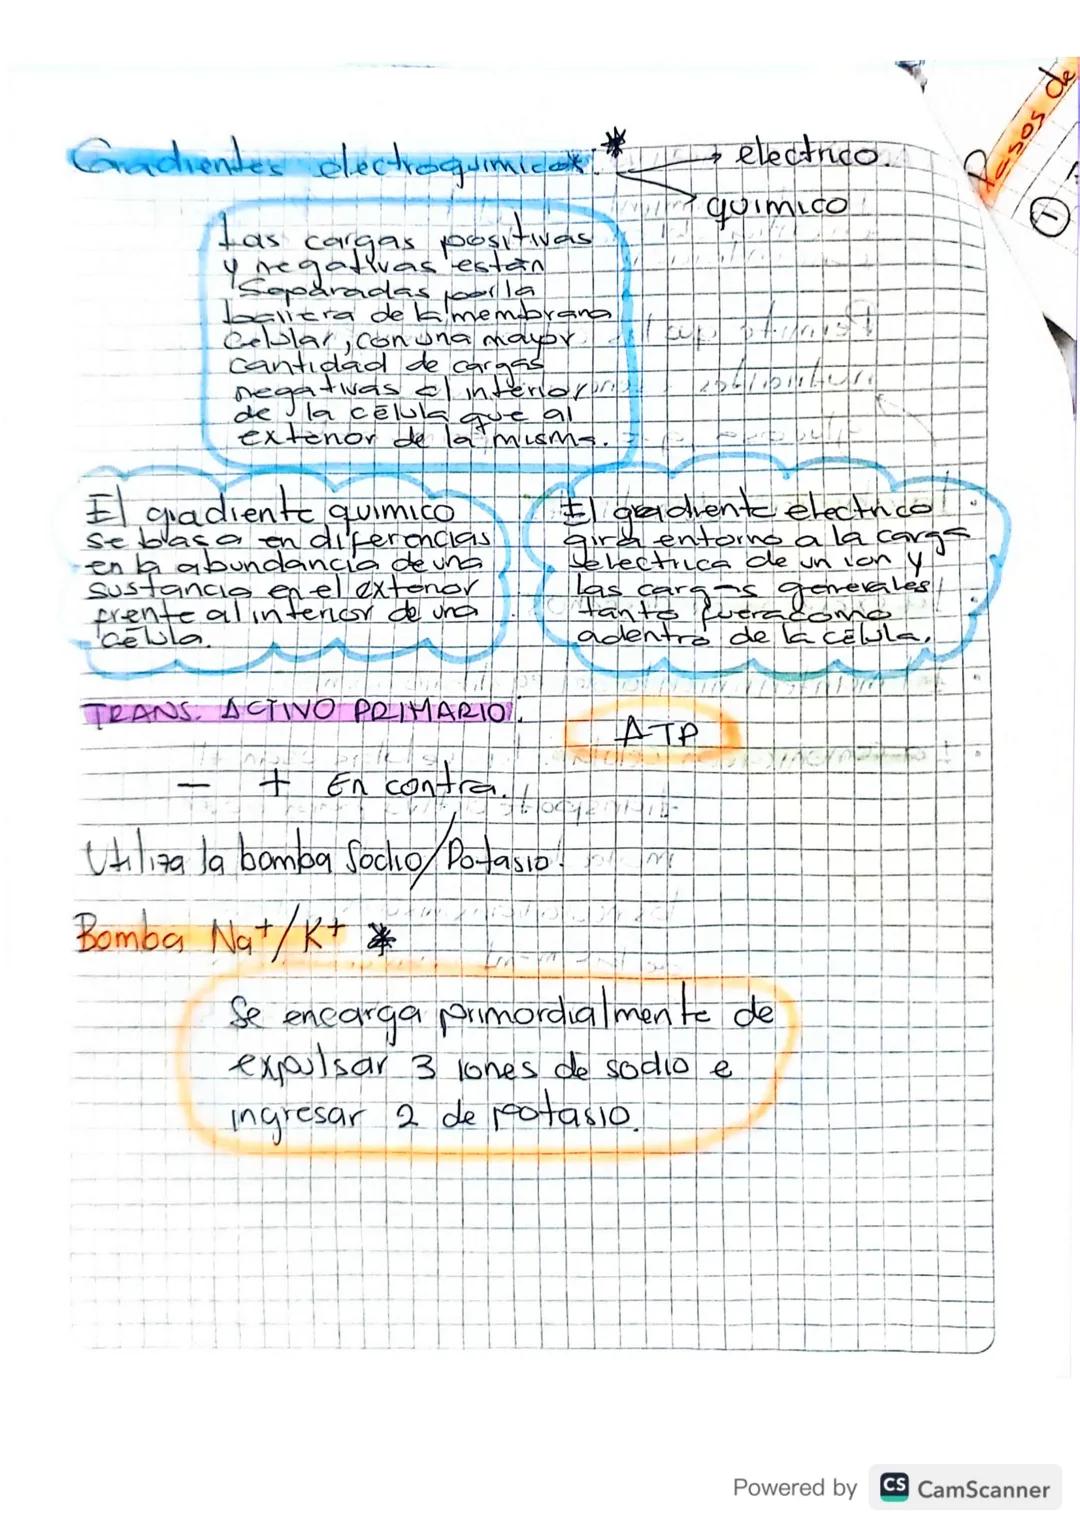 Gradientes electroquimicos: *
→ electrico.
→ quimico
Las cargas positivas
y negativas están
Separadas por la
barrera de la membrana
Celular, con una mayor
cantidad de cargas
negativas el interior
de la célula que al
exterior de la misma.
El gradiente quimico
se basa en diferencias
en la abundancia de una
sustancia en el exterior
frente al interior de una
célula.
El gradiente electrico
gira entorno a la carga
electrica de un ion y
las cargas generales
tanto fuera como
adentro de la célula.
TRANS. ACTIVO PRIMARIO:
ATP
- + En contra.
Utiliza la bomba Sodio/Potasio.
Bomba Na+/K+ *
Se encarga primordialmente de
expulsar 3 iones de sodio e
ingresar 2 de potasio.
Pasos de
1
Powered by CS CamScanner